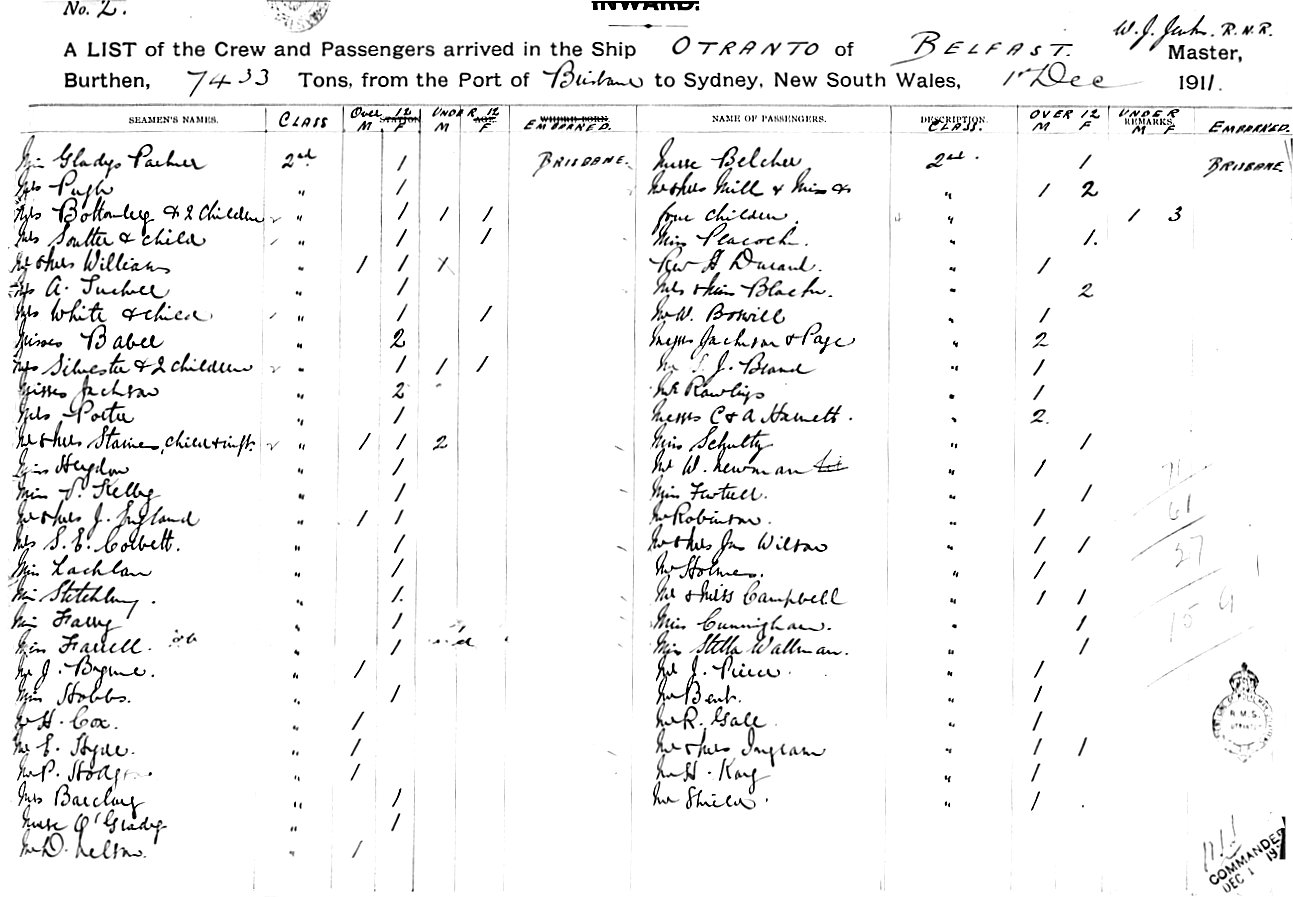 No. 2.
INWARD.
A LIST of the Crew and Passengers arrived in the Ship OTRANTO of BELFAST. R.N.R. Master,
Burthen, 7433 Tons, from the Port of Brisbane to Sydney, New South Wales, 1st Dec 1911.
SEAMEN'S NAMES. CLASS OVER 12 M F UNDER 12 M F EMBARKED. NAME OF PASSENGERS. DESCRIPTION. CLASS. OVER 12 M F UNDER REMARKS. M F EMBARKED.
Miss Gladys Palmer 2nd 1 BRISBANE. Nurse Belcher 2nd. 1 BRISBANE
Mrs Pugh " 1 Mr & Mrs Mill & Miss & " 1 2
Mrs & 2 Children " 1 1 1 four children. " 1 3
Mrs Soutter & child " 1 1 Miss Peacock. " 1.
Mr & Mrs Williams " 1 1 Rev H Durand. " 1
Mrs A. " 1 Mrs & Miss " 2
Mrs White & child " 1 1 Mr W. Boswill " 1
Misses Babel " 2 Messrs Jackson & Page " 2
Mrs Silvester & 2 children " 1 1 1 Mr J. Brand " 1
Misses Jackson " 2 Mr Rawlings " 1
Mrs Porter " 1 Messrs C & A Harnett. " 2.
Mr & Mrs Staines, child & inft. " 1 1 2 Miss Schultz " 1
Miss " 1 Mr W. Newman " 1
Miss Kelly " 1 Miss " 1
Mr & Mrs J. England " 1 1 Mr Robinson. " 1
Mrs S. E. Corbett. " 1 Mr & Mrs Jas Wilson " 1 1
Miss Lachlan " 1 Mr Holmes. " 1
Miss Stetchbury. " 1. Mr & Campbell " 1 1
Miss " 1 Miss Cunningham. " 1
Miss Farrell. " 1 Miss Stella Wallman. " 1
Mr J. " 1 Mr J. Pierce. " 1
Miss Hobbs. " 1 Mr " 1
Mr H. Cox. " 1 Mr R. Gall " 1
Mr E. Hyde. " 1 Mr & Mrs Ingram " 1 1
Mr P. " 1 Mr H. " 1
Mrs Barclay " 1 Mr Shield. " 1
Nurse O'Grady " 1
Mr D. Nelson. " 1
R.M.S.
COMMANDER
DEC 1